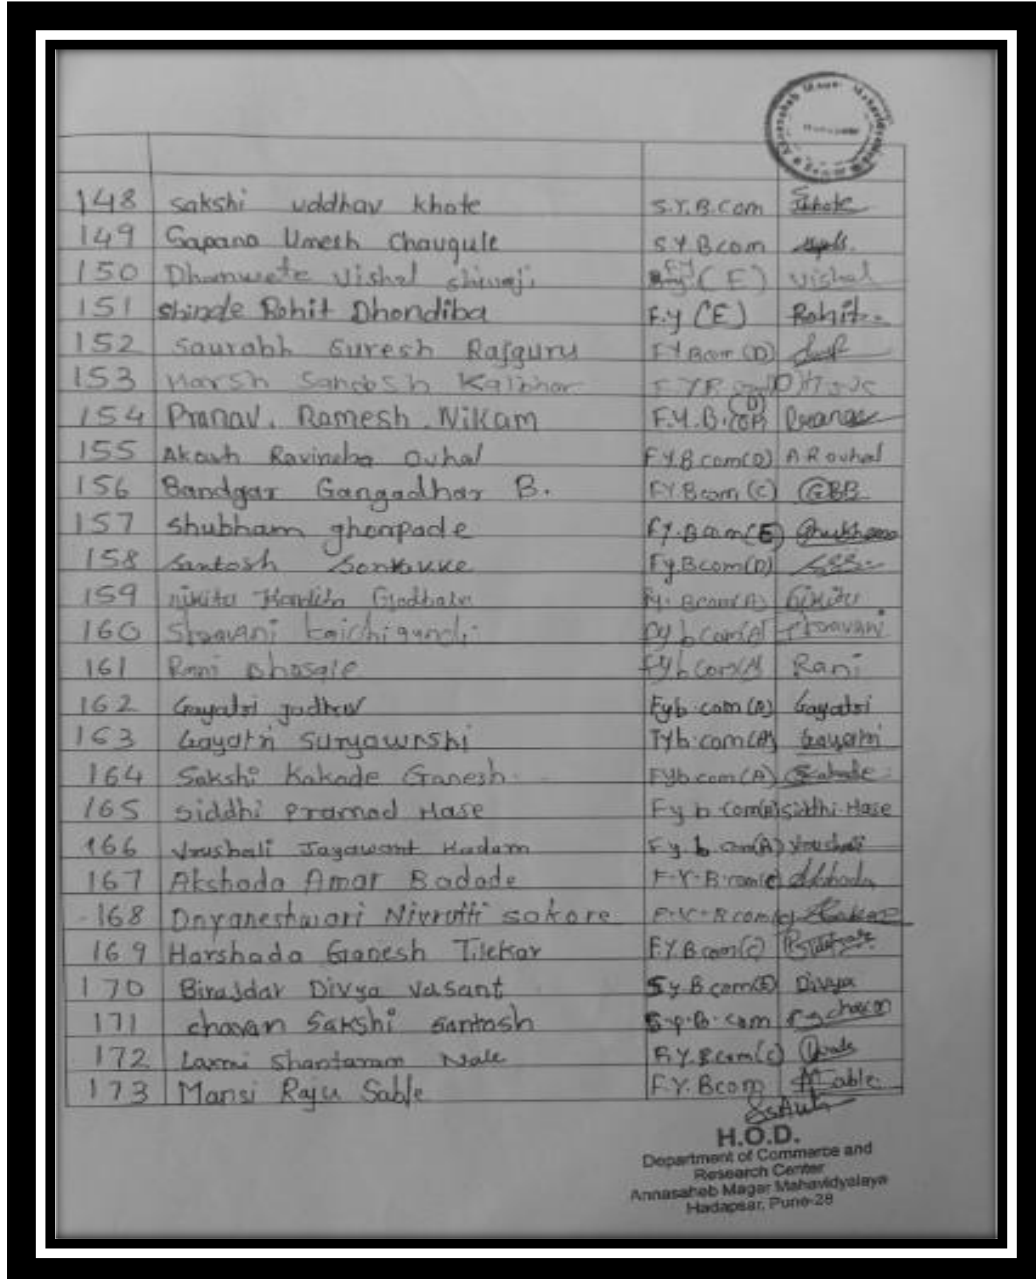 Annasaheb Magar Mahavidyalaya
148 sakshi uddhav khote S.Y.B.Com
149 Sapana Umesh Chaugule S.Y.Bcom
150 Dhanwete Vishal shivaji (E) Vishal
151 Shinde Rohit Dhondiba F.y (E) Rohit
152 Saurabh Suresh Rajguru F.Y Bcom (D)
153 Harsh Sandesh
154 Pranav. Ramesh .Nikam F.Y.B. (D)
155 Akash Ouhal F.Y.B.com(D) A R ouhal
156 Bandgar Gangadhar B. F.Y.Bcom (C) GBB
157 shubham ghorpade F.y.Bcom(E)
158 Santosh F.y.Bcom(D)
159 nikita Fy. Bcom(A)
160 Fy bcom(A)
161 Rani Bhosale Fybcom(A) Rani
162 Gayatri jadhav Fyb.com(A) Gayatri
163 Gayatri Suryawnshi Fyb.com(A) Gayatri
164 Sakshi Kakade Ganesh. Fyb.com(A)
165 Siddhi Pramod Hase Fy b.com(A) Siddhi.Hase
166 Vrushali Jayawant Kadam F.y.b.com(A) Vrushali
167 Akshada Amar Badade F.Y.B.com(c)
168 Dnyaneshwari Nivrutti sakore
169 Harshada Ganesh Tilekar F.Y.B.com(C)
170 Birajdar Divya Vasant S.y.B.com(E) Divya
171 chavan Sakshi Santosh
172 Laxmi Shantaram Nale F.Y.B.com(c)
173 Mansi Raju Sable F.Y.Bcom
H.O.D.
Department of Commerce and
Research Center
Annasaheb Magar Mahavidyalaya
Hadapsar, Pune-28